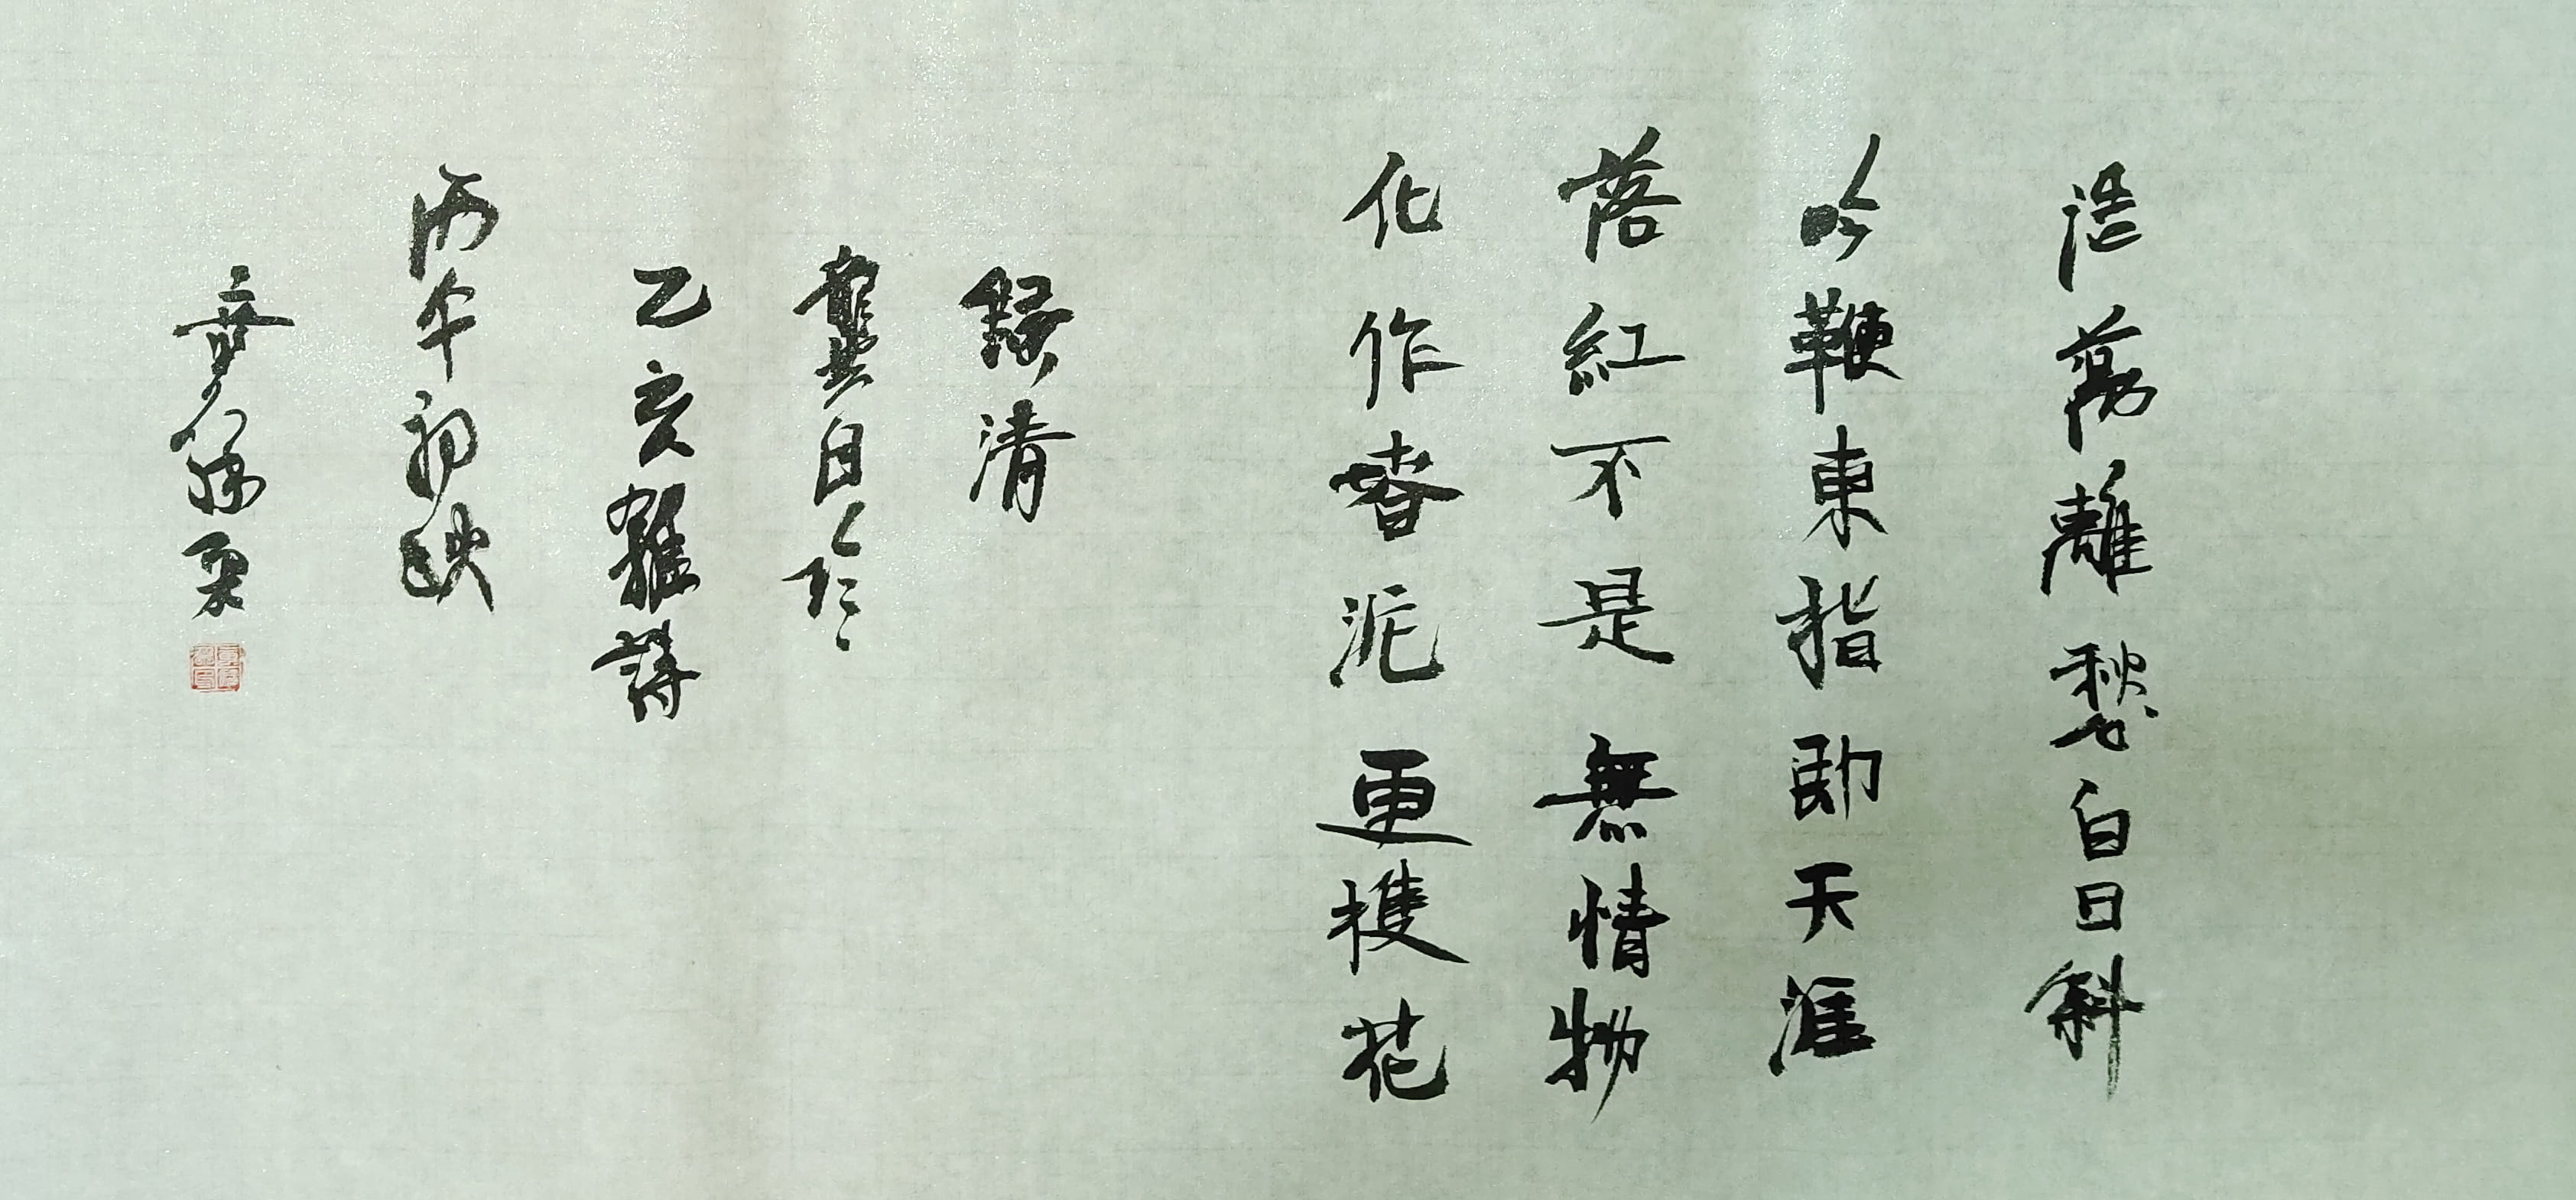 浩蕩離愁白日斜
吟鞭東指即天涯
落紅不是無情物
化作春泥更護花
錄清
龔自珍
乙亥雜詩
丙午初